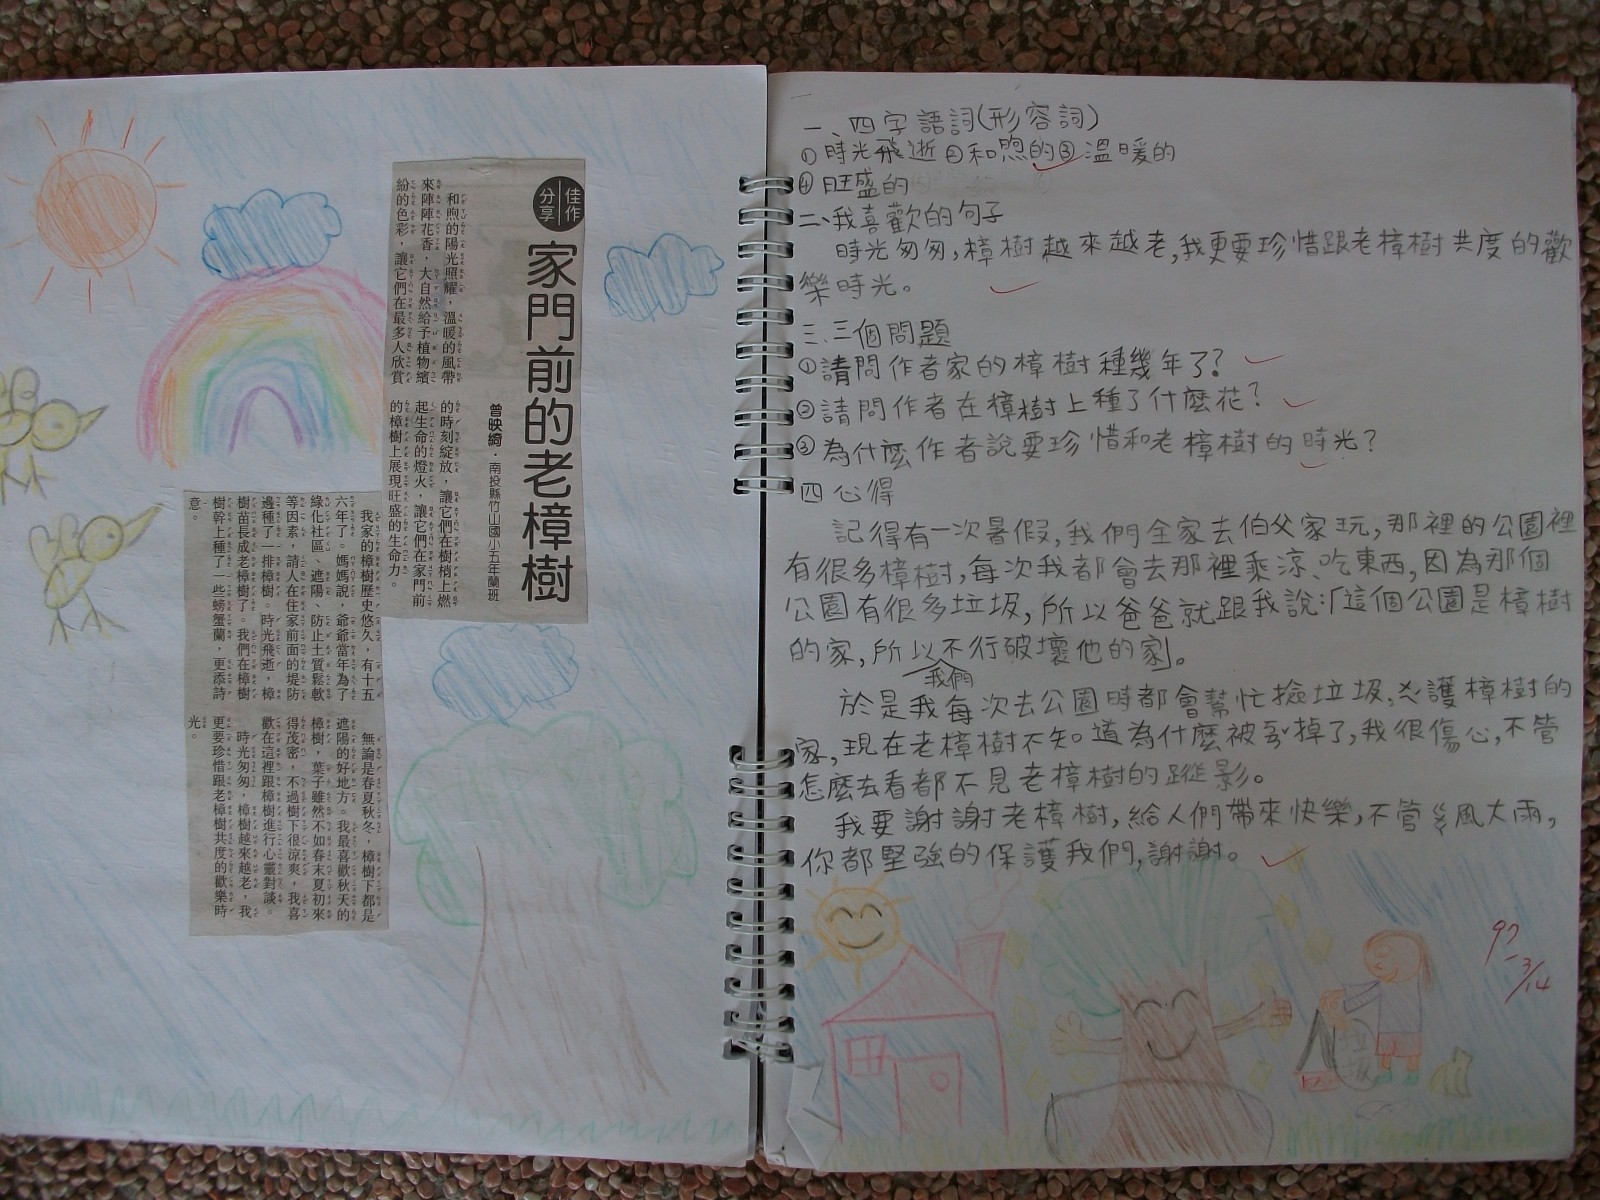 佳作
分享
家門前的老樟樹
曾映綺・南投縣竹山國小五年蘭班
和煦的陽光照耀，溫暖的風帶
來陣陣花香，大自然給予植物繽
紛的色彩，讓它們在最多人欣賞
的時刻綻放，讓它們在樹梢上燃
起生命的燈火，讓它們在家門前
的樟樹上展現旺盛的生命力。
我家的樟樹歷史悠久，有十五
六年了。媽媽說，爺爺當年為了
綠化社區、遮陽、防止土質鬆軟
等因素，請人在住家前面的堤防
邊種了一排樟樹。時光飛逝，樟
樹苗長成老樟樹了。我們在樟樹
樹幹上種了一些螃蟹蘭，更添詩
意。
無論是春夏秋冬，樟樹下都是
遮陽的好地方。我最喜歡秋天的
樟樹，葉子雖然不如春末夏初來
得茂密，不過樹下很涼爽，我喜
歡在這裡跟樟樹進行心靈對談。
時光匆匆，樟樹越來越老，我
更要珍惜跟老樟樹共度的歡樂時
光。
一、四字語詞(形容詞)
①時光飛逝②和煦的③溫暖的
④旺盛的
二、我喜歡的句子
時光匆匆,樟樹越來越老,我更要珍惜跟老樟樹共度的歡
樂時光。
三.三個問題
①請問作者家的樟樹種幾年了?
②請問作者在樟樹上種了什麼花?
③為什麼作者說要珍惜和老樟樹的時光?
四心得
記得有一次暑假,我們全家去伯父家玩,那裡的公園裡
有很多樟樹,每次我都會去那裡乘涼、吃東西,因為那個
公園有很多垃圾,所以爸爸就跟我說:「這個公園是樟樹
的家,所以不行破壞他的家」。
我們
於是我每次去公園時都會幫忙撿垃圾,ㄞ護樟樹的
家,現在老樟樹不知道為什麼被ㄎ掉了,我很傷心,不管
怎麼去看都不見老樟樹的蹤影。
我要謝謝老樟樹,給人們帶來快樂,不管ㄠ風大雨,
你都堅強的保護我們,謝謝。
97
3/14
垃圾